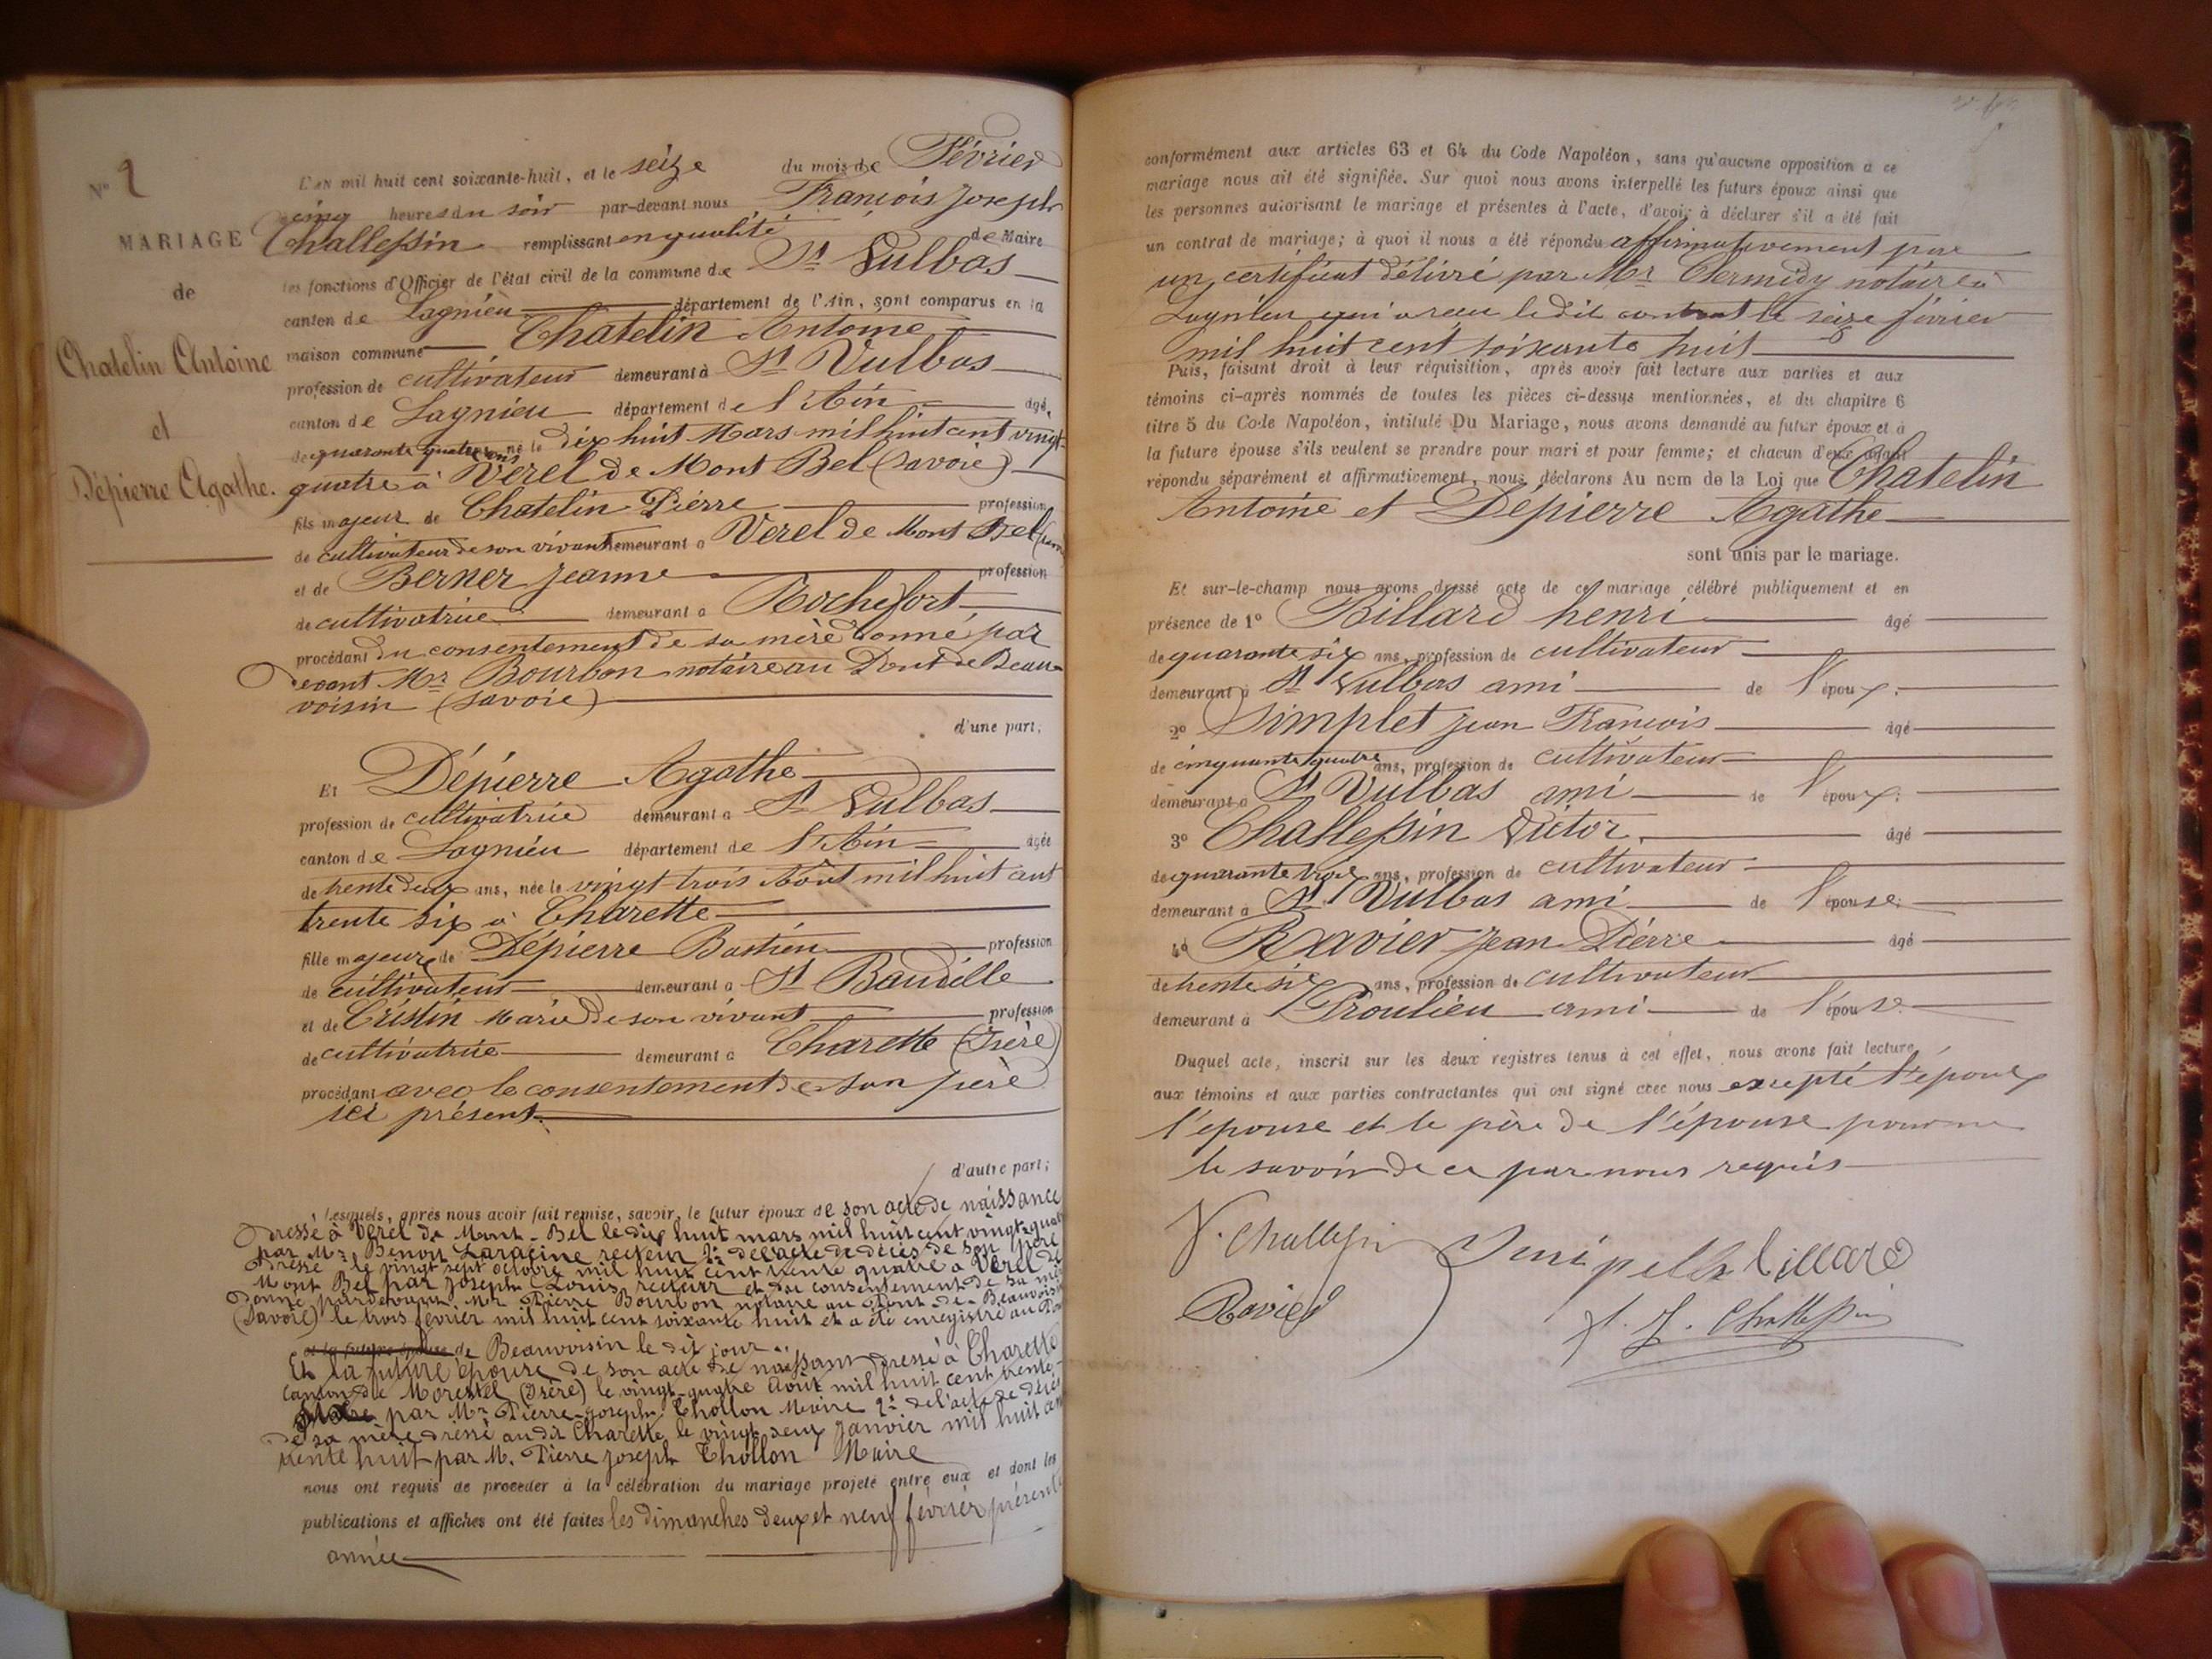 N° 2
MARIAGE
de
Chatelin Antoine
et
Dépierre Agathe.
L'AN mil huit cent soixante-huit, et le seize du mois de Février
cinq heures du soir par-devant nous François Joseph
Challessin remplissant en qualité de Maire
les fonctions d'Officier de l'état civil de la commune de St Vulbas
canton de Lagnieu département de l'Ain, sont comparus en la
maison commune Chatelin Antoine
profession de cultivateur demeurant à St Vulbas
canton de Lagnieu département de l'Ain âgé,
de quarante quatre ans né le dix huit Mars mil huit cent vingt
quatre à Verel de Mont Bel (Savoie)
fils majeur de Chatelin Pierre profession
de cultivateur de son vivant demeurant à Verel de Mont Bel
et de Berner Jeanne profession
de cultivatrice demeurant à Rochefort
procédant du consentement de sa mère donné par
devant Mr Bourbon notaire au Pont de Beau
voisin (Savoie)
d'une part;
Et Dépierre Agathe
profession de cultivatrice demeurant à St Vulbas
canton de Lagnieu département de l'Ain âgée
de trente deux ans, née le vingt trois Août mil huit cent
trente six à Charette
fille majeure de Dépierre Bastien profession
de cultivateur demeurant à St Baudille
et de Cristin Marie de son vivant profession
de cultivatrice demeurant à Charette (Isère)
procédant avec le consentement de son père
ici présent.
d'autre part;
Lesquels, après nous avoir fait remise, savoir, le futur époux de son acte de naissance
dressé à Verel de Mont-Bel le dix huit mars mil huit cent vingt quatre
par Mr Benoit Laracine recteur 2° de l'acte de décès de son père
dressé le vingt sept octobre mil huit cent trente quatre à Verel de
Mont Bel par Joseph Louis recteur et du consentement de sa mère
donné pardevant Mr Pierre Bourbon notaire au Pont-de-Beauvoisin
(Savoie) le trois février mil huit cent soixante huit et a été enregistré au Pont
et la future épouse de Beauvoisin le dit jour.
Et la future épouse de son acte de naissance dressé à Charette
canton de Morestel (Isère) le vingt-quatre Août mil huit cent trente-
par Mr Pierre-Joseph Thollon Maire 2° de l'acte de décès
de sa mère dressé au dit Charette le vingt deux janvier mil huit cent
trente huit par M. Pierre Joseph Thollon Maire
nous ont requis de procéder à la célébration du mariage projeté entre eux et dont les
publications et affiches ont été faites les dimanches deux et neuf février présente
année
conformément aux articles 63 et 64 du Code Napoléon, sans qu'aucune opposition a ce
mariage nous ait été signifiée. Sur quoi nous avons interpellé les futurs époux ainsi que
les personnes autorisant le mariage et présentes à l'acte, d'avoir à déclarer s'il a été fait
un contrat de mariage; à quoi il nous a été répondu affirmativement par
un certificat délivré par Mr Clermidy notaire à
Lagnieu qui a reçu le dit contrat le seize février
mil huit cent soixante huit
Puis, faisant droit à leur réquisition, après avoir fait lecture aux parties et aux
témoins ci-après nommés de toutes les pièces ci-dessus mentionnées, et du chapitre 6
titre 5 du Code Napoléon, intitulé Du Mariage, nous avons demandé au futur époux et à
la future épouse s'ils veulent se prendre pour mari et pour femme; et chacun d'eux ayant
répondu séparément et affirmativement, nous déclarons Au nom de la Loi que Chatelin
Antoine et Dépierre Agathe
sont unis par le mariage.
Et sur-le-champ nous avons dressé acte de ce mariage célébré publiquement et en
présence de 1° Billard henri âgé
de quarante six ans, profession de cultivateur
demeurant à St Vulbas ami de l'époux.
2° Simplet jean François âgé
de cinquante quatre ans, profession de cultivateur
demeurant à St Vulbas ami de l'époux.
3° Challessin Victor âgé
de quarante trois ans, profession de cultivateur
demeurant à St Vulbas ami de l'épouse.
4° Ravier jean Pierre âgé
de trente six ans, profession de cultivateur
demeurant à Proulieu ami de l'épouse
Duquel acte, inscrit sur les deux registres tenus à cet effet, nous avons fait lecture,
aux témoins et aux parties contractantes qui ont signé avec nous excepté l'époux
l'épouse et le père de l'épouse pour ne
le savoir de ce par nous requis
V. Challessin billard
Ravier f. J. Challessin